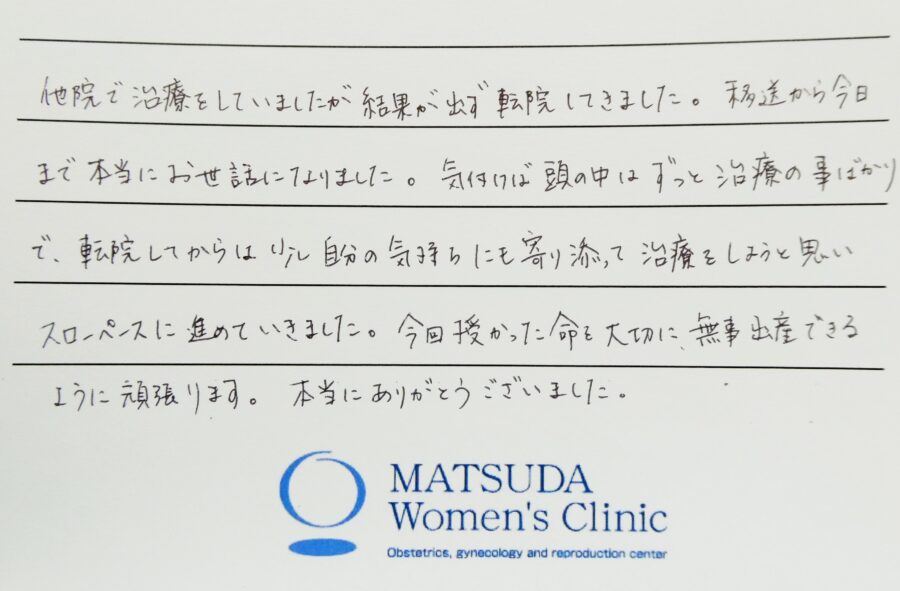 他院で治療をしていましたが結果が出ず転院してきました。移送から今日
まで本当にお世話になりました。気付けば頭の中はずっと治療の事ばかり
で、転院してからは少し自分の気持ちにも寄り添って治療をしようと思い
スローペースに進めていきました。今回授かった命を大切に、無事出産できる
ように頑張ります。本当にありがとうございました。
MATSUDA
Women's Clinic
Obstetrics, gynecology and reproduction center